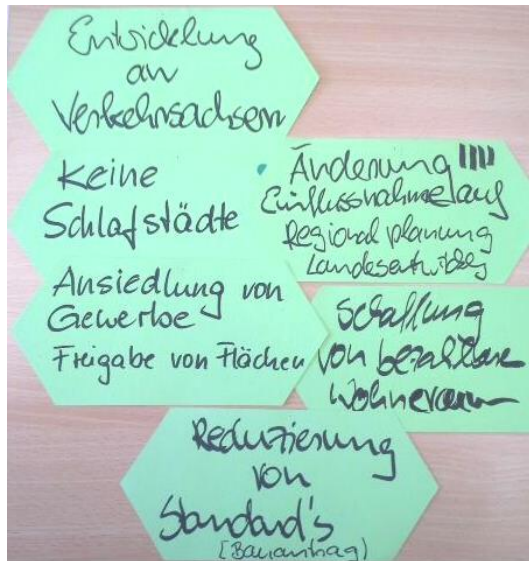 Entwicklung
an
Verkehrsachsen
Keine
Schlafstädte
Änderung
Einflussnahme auf
Regionalplanung
Ansiedlung von
Gewerbe
Freigabe von Flächen
Schaffung
von bezahlbare
Wohnraum
Reduzierung
von
Standard's
[Bauantrag)